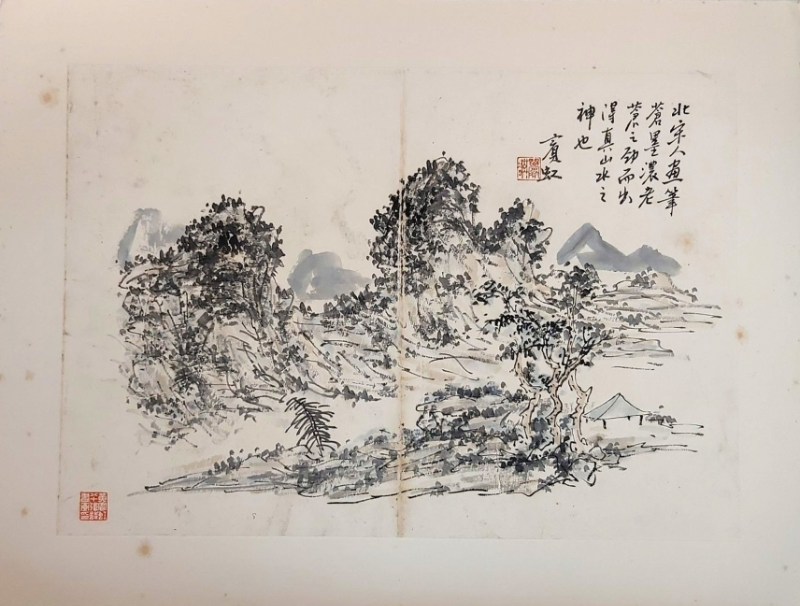 北宋人画筆
蒼墨濃老
蒼之勁而出
得真山水之
神也
賓虹